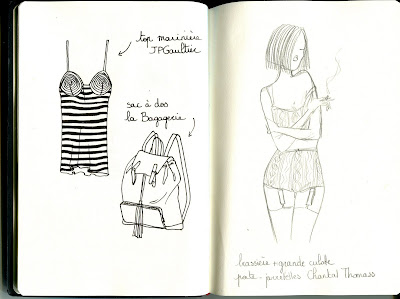 top marinière
JPGaultier
sac à dos
la Bagagerie
brassière + grande culotte
porte-jarretelles Chantal Thomass